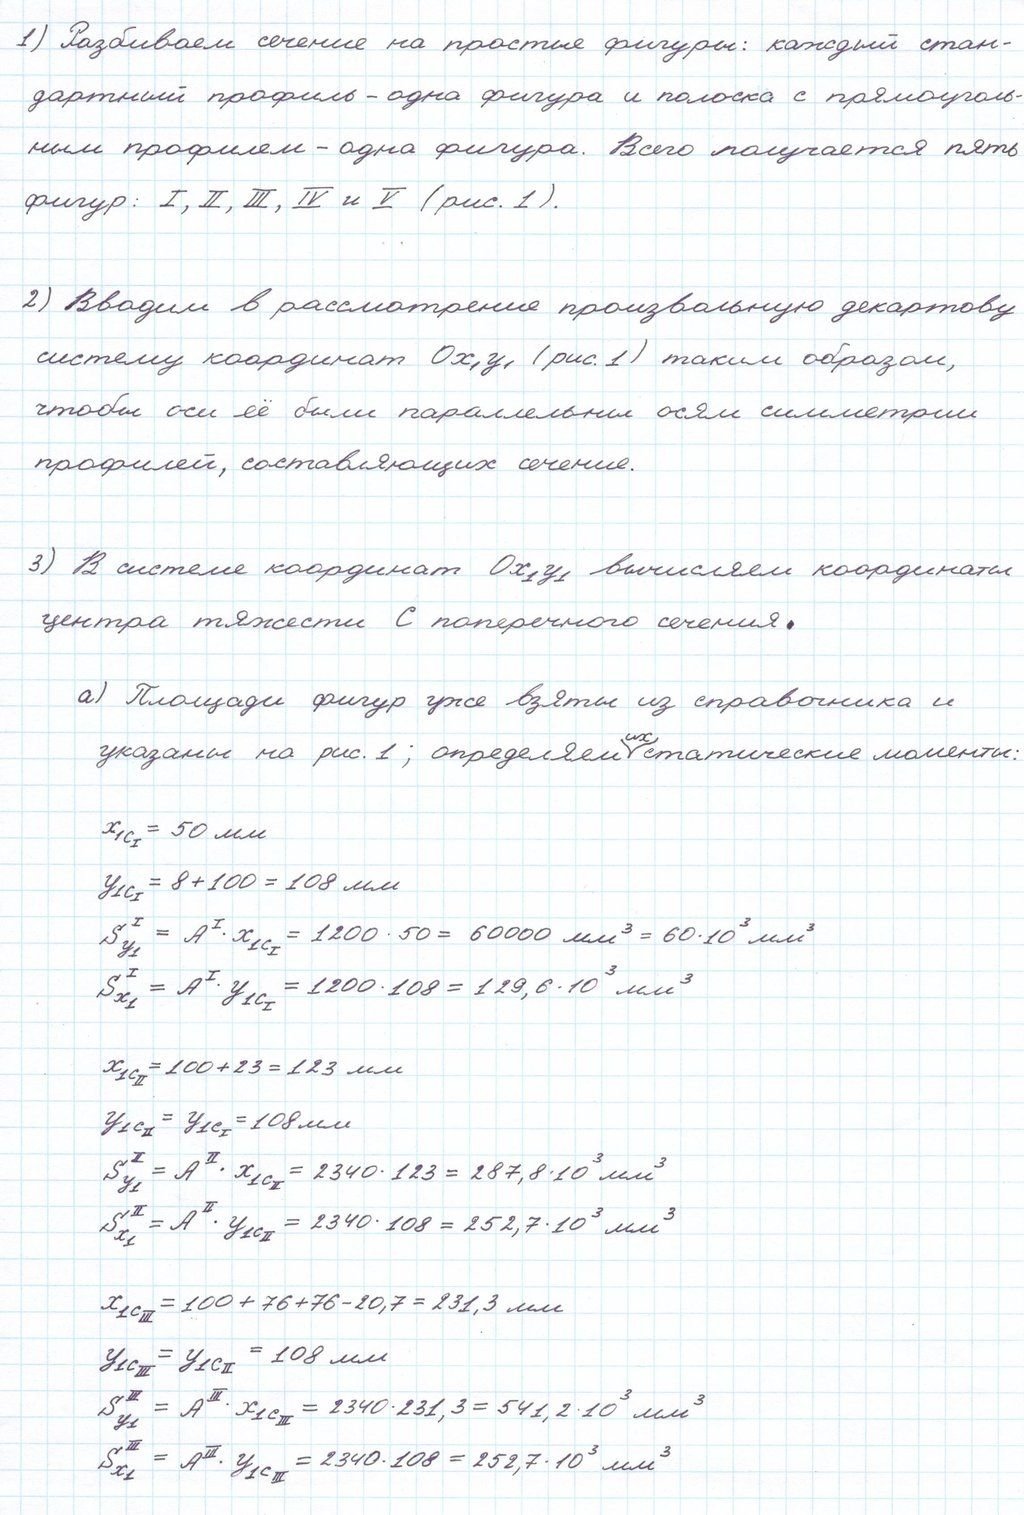 1) Разбиваем сечение на простые фигуры: каждый стан-
дартный профиль – одна фигура и полоска с прямоуголь-
ным профилем – одна фигура. Всего получается пять
фигур: I, II, III, IV и V (рис. 1).
2) Вводим в рассмотрение произвольную декартову
систему координат Ox₁y₁ (рис. 1) таким образом,
чтобы оси её были параллельны осям симметрии
профилей, составляющих сечение.
3) В системе координат Ox₁y₁ вычисляем координаты
центра тяжести C поперечного сечения.
а) Площади фигур уже взяты из справочника и
указаны на рис. 1; определяем их статические моменты:
x₁c_I = 50 мм
y₁c_I = 8+100 = 108 мм
S_y₁^I = A^I · x₁c_I = 1200 · 50 = 60000 мм³ = 60·10³ мм³
S_x₁^I = A^I · y₁c_I = 1200·108 = 129,6·10³ мм³
x₁c_II = 100+23 = 123 мм
y₁c_II = y₁c_I = 108 мм
S_y₁^II = A^II · x₁c_II = 2340·123 = 287,8·10³ мм³
S_x₁^II = A^II · y₁c_II = 2340·108 = 252,7·10³ мм³
x₁c_III = 100+76+76–20,7 = 231,3 мм
y₁c_III = y₁c_II = 108 мм
S_y₁^III = A^III · x₁c_III = 2340·231,3 = 541,2·10³ мм³
S_x₁^III = A^III · y₁c_III = 2340·108 = 252,7·10³ мм³